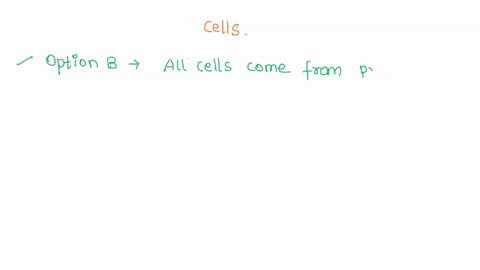 cells.
Option B → All cells come from